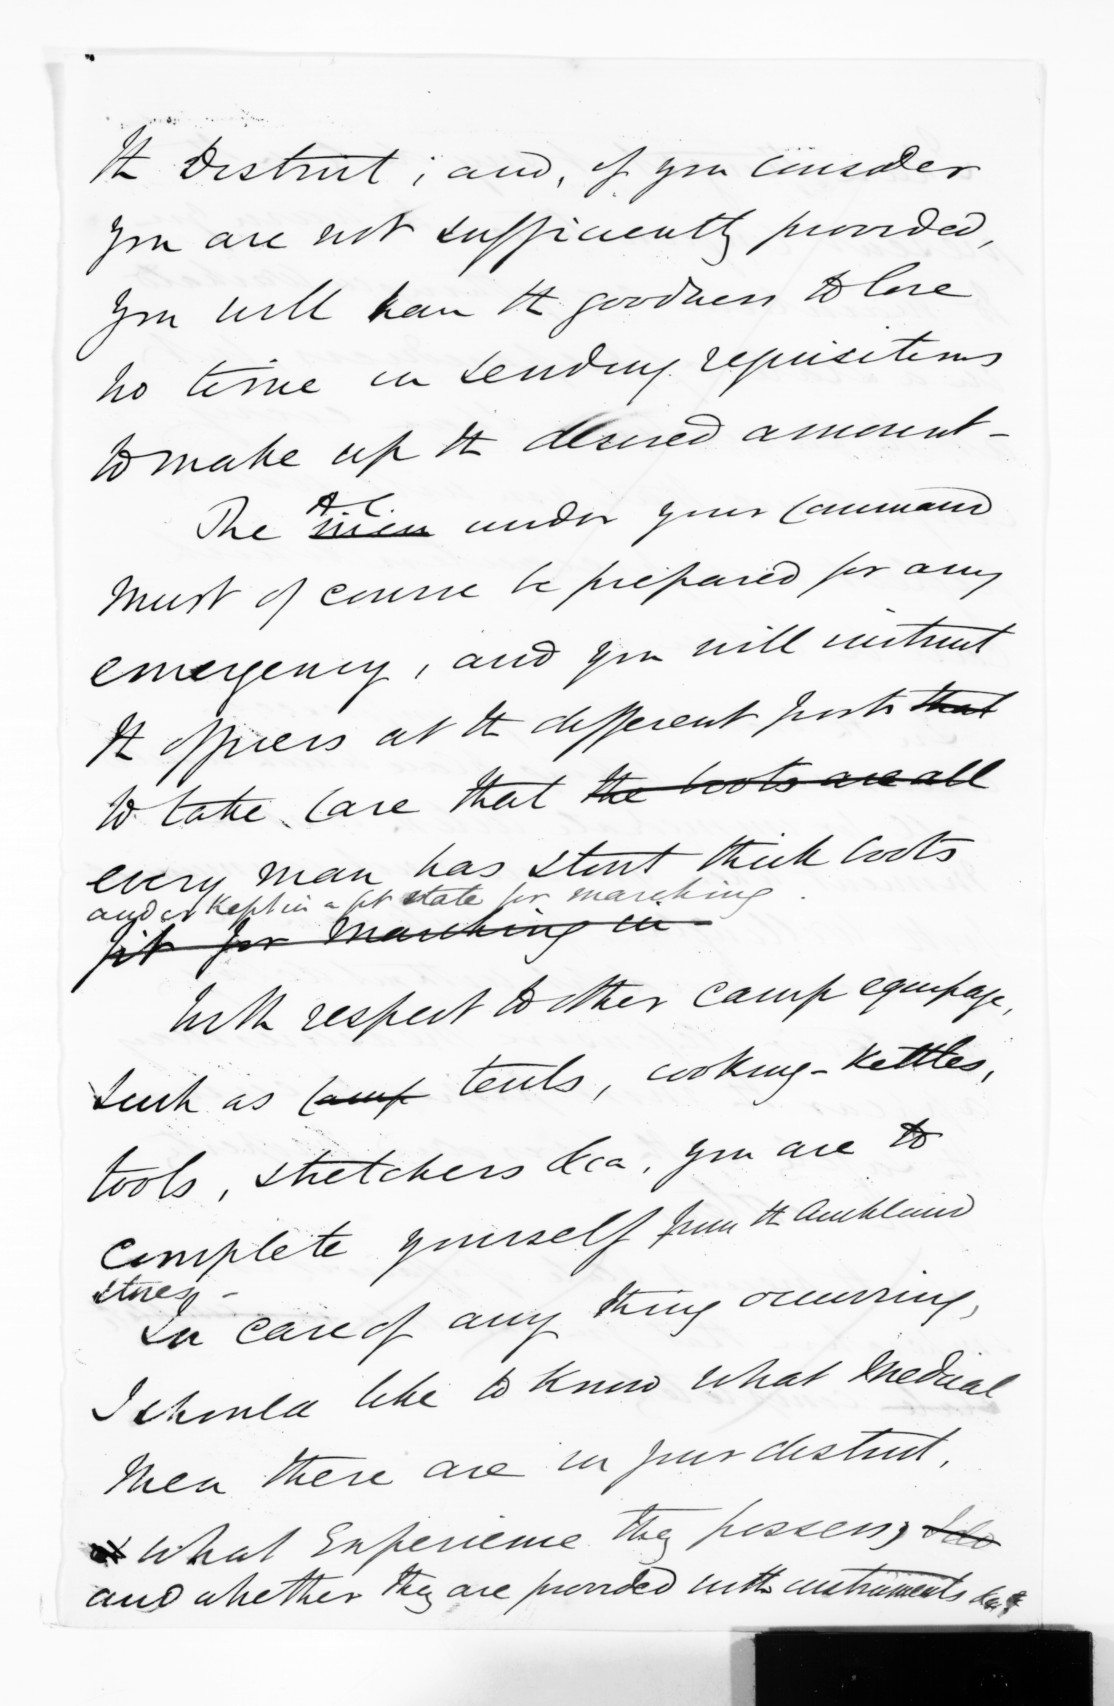 the District; and, if you consider
you are not sufficiently provided,
you will have the goodness to lose
no time in sending requisitions
to make up the desired amount -
The men A.C. under your command
must of course be prepared for any
emergency, and you will instruct
the officers at the different posts that
to take care that the boots are all
every man has stout thick boots
and is kept in a fit state for marching.
fit for marching in -
With respect to other camp equipage,
such as camp tents, cooking-kettles,
tools, stretchers &ca, you are to
complete yourself from the Auckland
stores -
In case of any thing occurring,
I should like to know what medical
men there are in your district,
what experience they possess,
and whether they are provided with instruments &c